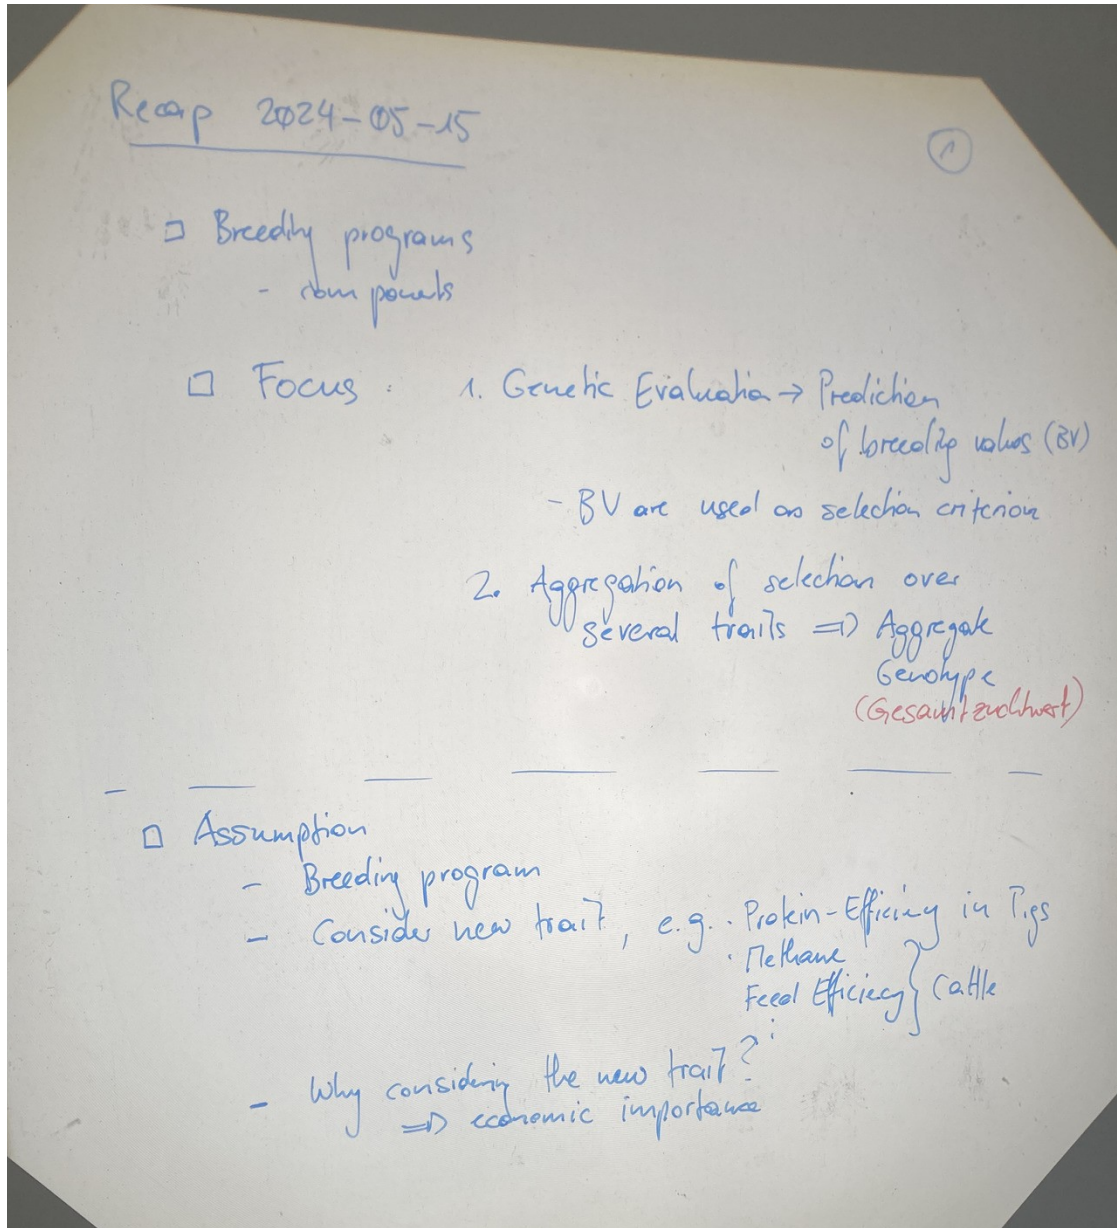 Recap 2024-05-15
1
□ Breeding programs
- components
□ Focus : 1. Genetic Evaluation → Prediction
of breeding values (BV)
- BV are used as selection criterion
2. Aggregation of selection over
several traits => Aggregate
Genotype
(Gesamtzuchtwert)
□ Assumption
- Breeding program
- Consider new trait, e.g. · Protein-Efficiency in Pigs
· Methane
Feed Efficiency } Cattle
- Why considering the new trait?
=> economic importance